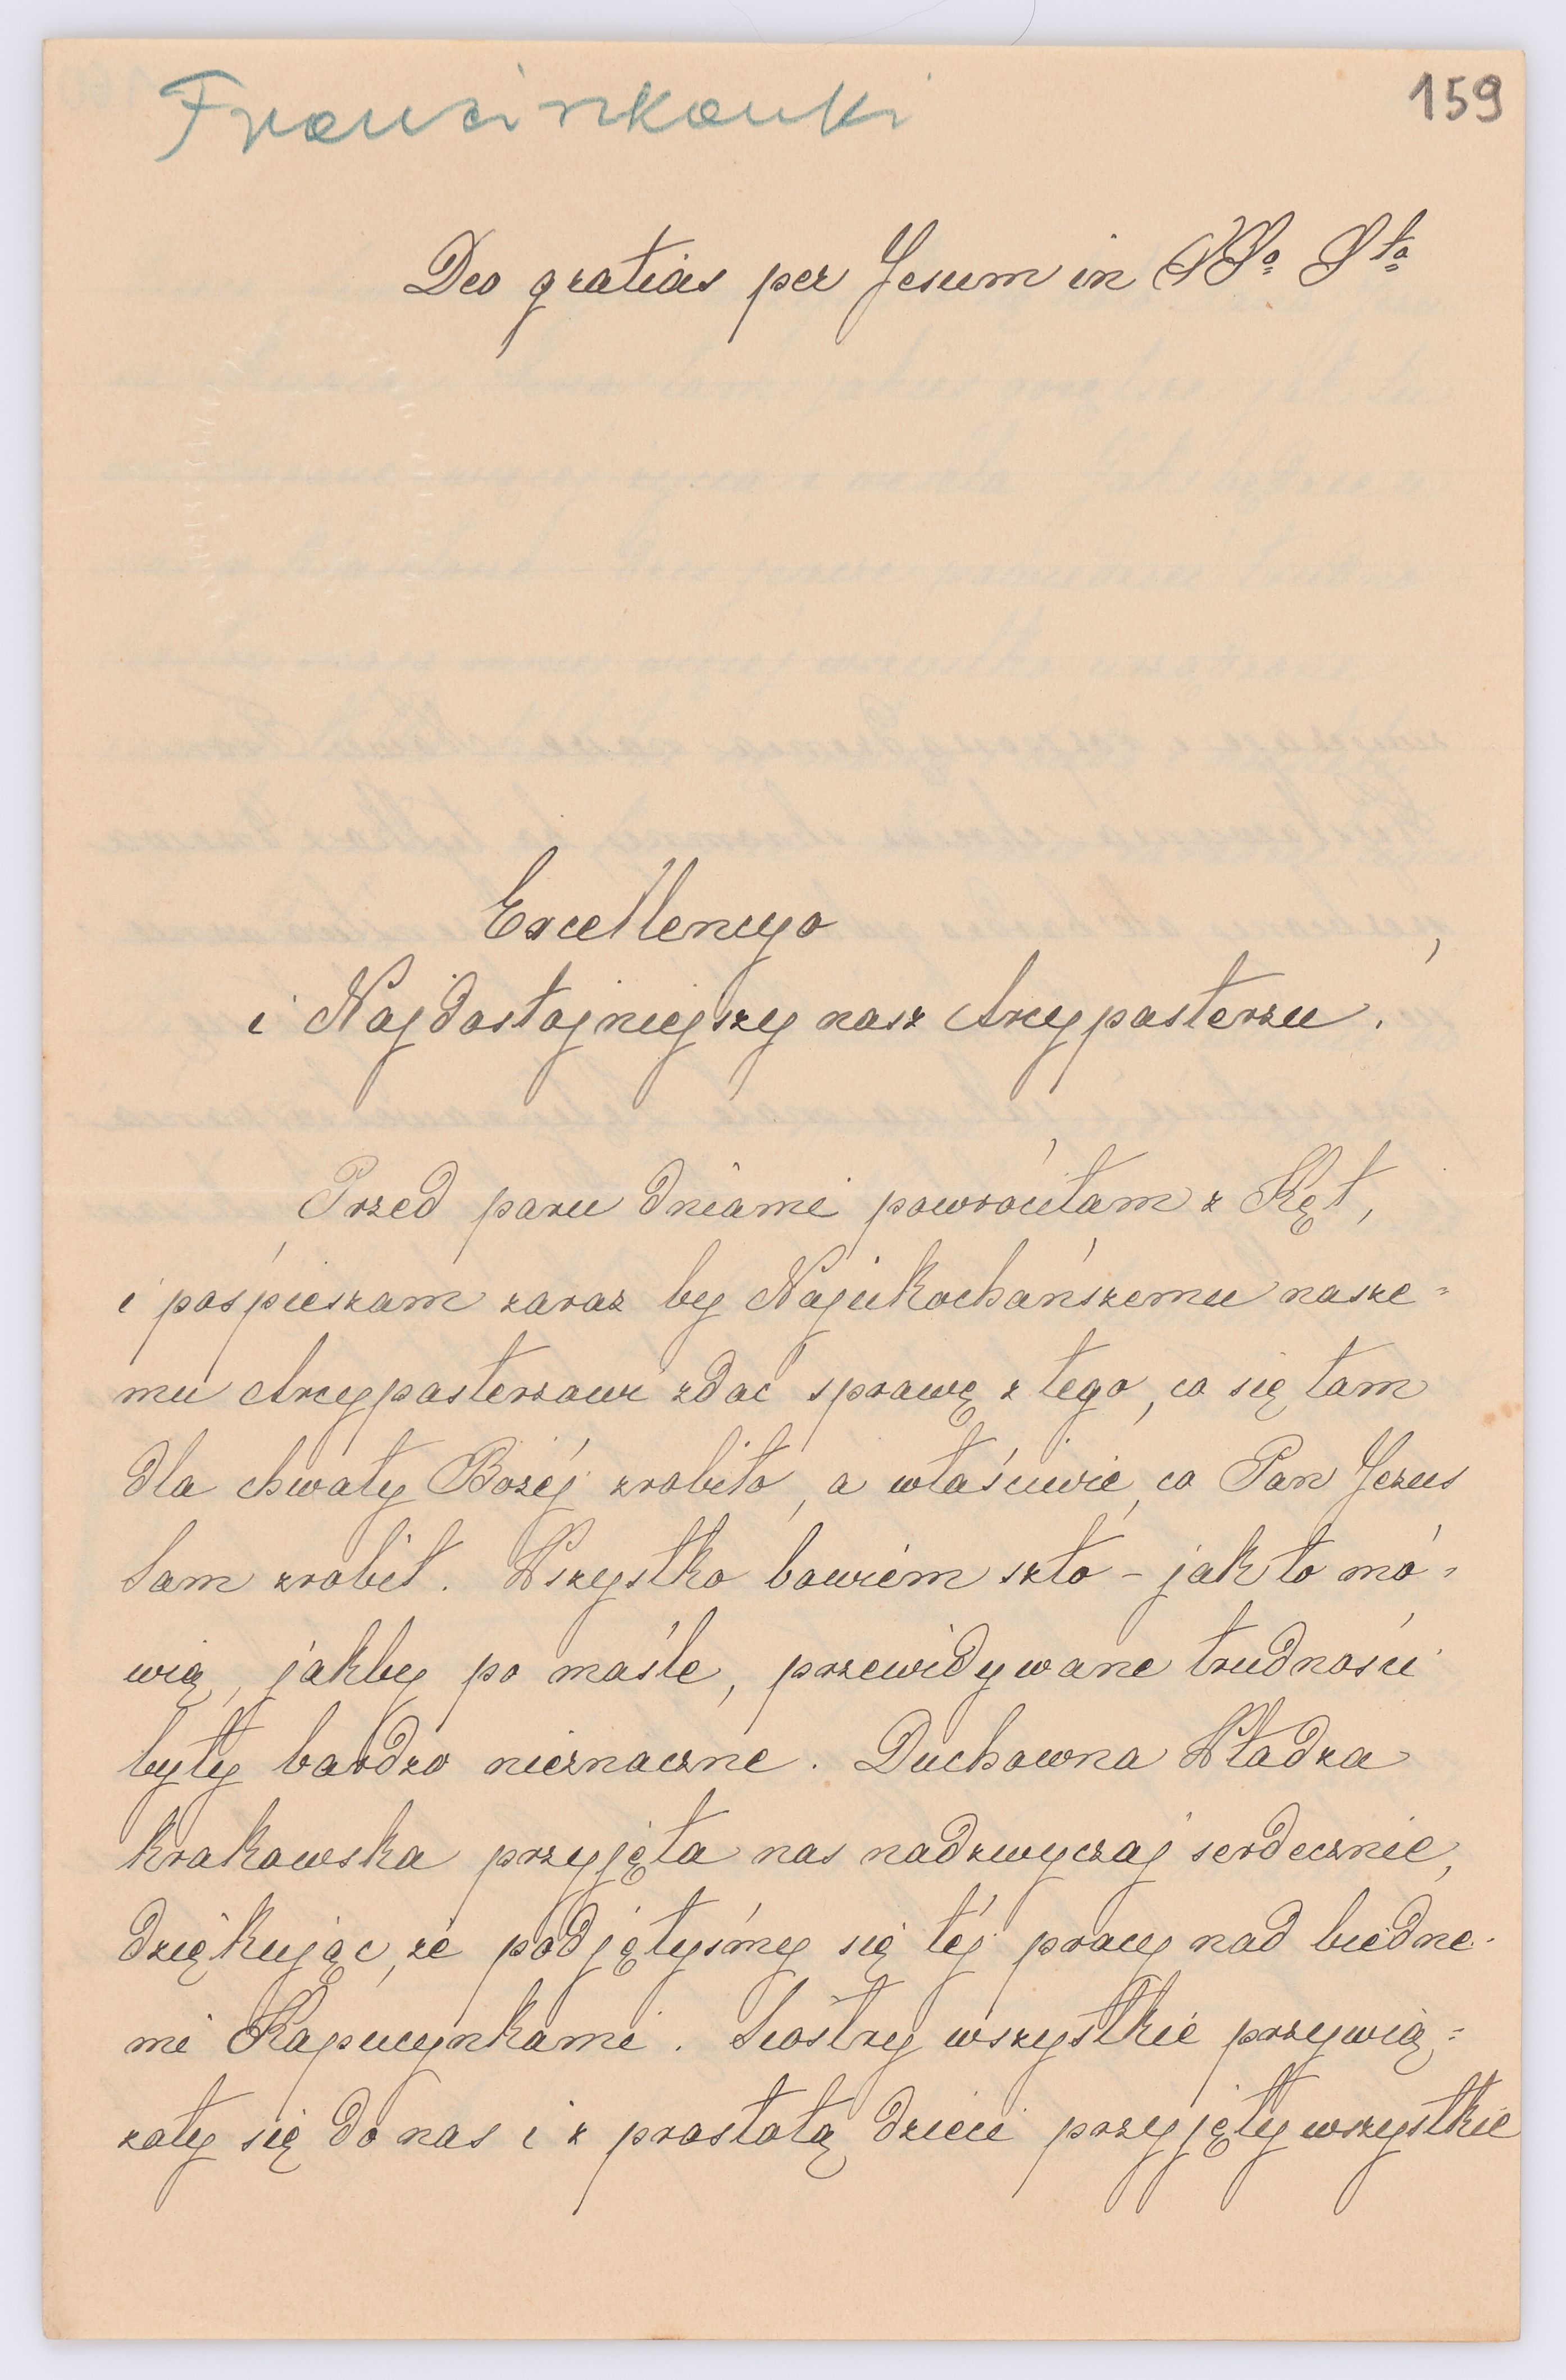 Franciszkanki
159
Deo gratias per Jesum in SSo Sto
Excellencyo
i Najdostojniejszy nasz Arcypasterzu!
Przed paru dniami powróciłam z Kęt,
i pośpieszam zaraz by Najukochańszemu nasze=
mu Arcypasterzowi zdać sprawę z tego, co się tam
dla chwały Bożéj zrobiło, a właściwie, co Pan Jezus
Sam zrobił. Wszystko bowiem szło - jak to mó=
wią, jakby po maśle, przewidywane trudności
były bardzo nieznaczne. Duchowna Władza
krakowska przyjęła nas nadzwyczaj serdecznie,
dziękując, że podjęłyśmy się téj pracy nad biedne-
mi Kapucynkami. Siostry wszystkie przywią=
zały się do nas i z prostotą dzieci przyjęły wszystkie